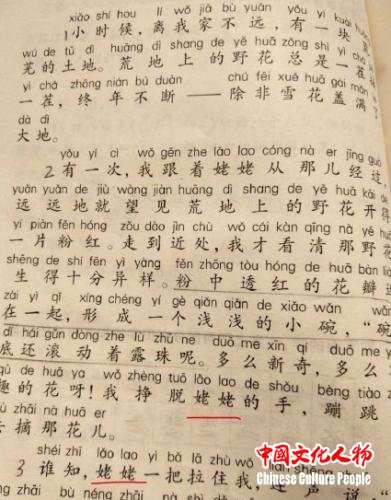 xiǎo shí hou lí wǒ jiā bù yuǎn yǒu yí kuài
1小时候，离我家不远，有一块
wú de tǔ dì huāng dì shang de yě huā zǒng shì yì chá
芜的土地。荒地上的野花总是一茬
yì chá zhōng nián bú duàn chú fēi xuě huā gài mǎn
一茬，终年不断——除非雪花盖满了
dà dì
大地。
yǒu yí cì wǒ gēn zhe lǎo lao cóng nà er jīng guò
2有一次，我跟着姥姥从那儿经过，
yuǎn yuǎn de jiù wàng jiàn huāng dì shang de yě huā kāi de
远远地就望见荒地上的野花开得
yí piàn fěn hóng zǒu dào jìn chù wǒ cái kàn qīng nà yě huā
一片粉红。走到近处，我才看清那野花
shēng de shí fēn yì yàng fěn zhōng tòu hóng de huā bàn
生得十分异样。粉中透红的花瓣
zài yì qǐ xíng chéng yí gè qiǎn qiǎn de xiǎo wǎn wǎn
在一起，形成一个浅浅的小碗，“碗
dǐ hái gǔn dòng zhe lù zhū ne duō me xīn qí duō me
底还滚动着露珠呢。多么新奇，多么
qù de huā ya wǒ zhèng tuō lǎo lao de shǒu bèng tiào
趣的花呀！我挣脱姥姥的手，蹦跳
qù zhāi nà huā er
去摘那花儿。
shéi zhī lǎo lao yì bǎ lā zhù wǒ
3谁知，姥姥一把拉住我
bù néng zhāi
中國文化人物
Chinese Culture People